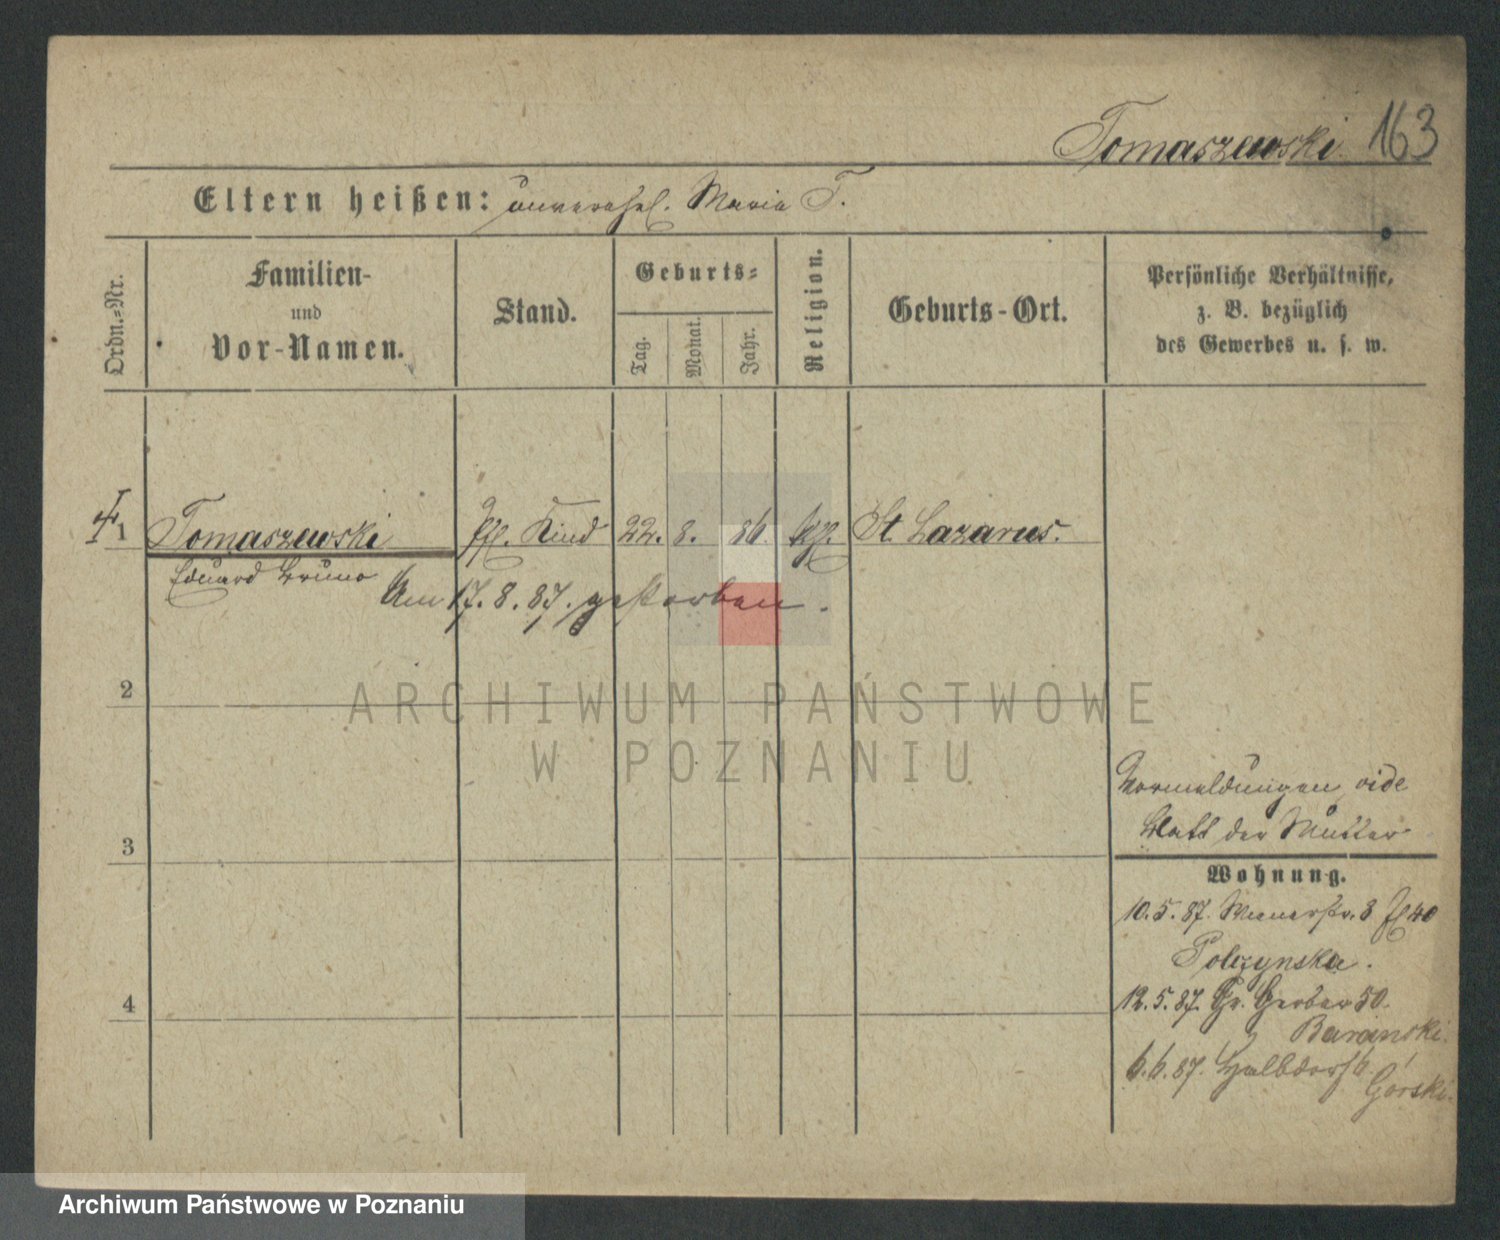 Tomaszewski 163
Eltern heißen: unverehel. Maria T.
Ordn.-Nr.
Familien-
und
Vor-Namen.
Stand.
Geburts-
Tag.
Monat.
Jahr.
Religion.
Geburts-Ort.
Persönliche Verhältnisse,
z. B. bezüglich
des Gewerbes u. s. w.
1 Tomaszewski Pfl. Kind 22. 8. 86. St. Lazarus.
Eduard Bruno
Am 17. 8. 87. gestorben.
2
ARCHIWUM PAŃSTWOWE
W POZNANIU
Vormeldungen vide
Blatt der Mutter
3
Wohnung.
10. 5. 87. 8 40
12. 5. 87. Gr. Gerber 50.
4
Baranski.
6. 6. 87. Halbdorf
Górski.
Archiwum Państwowe w Poznaniu